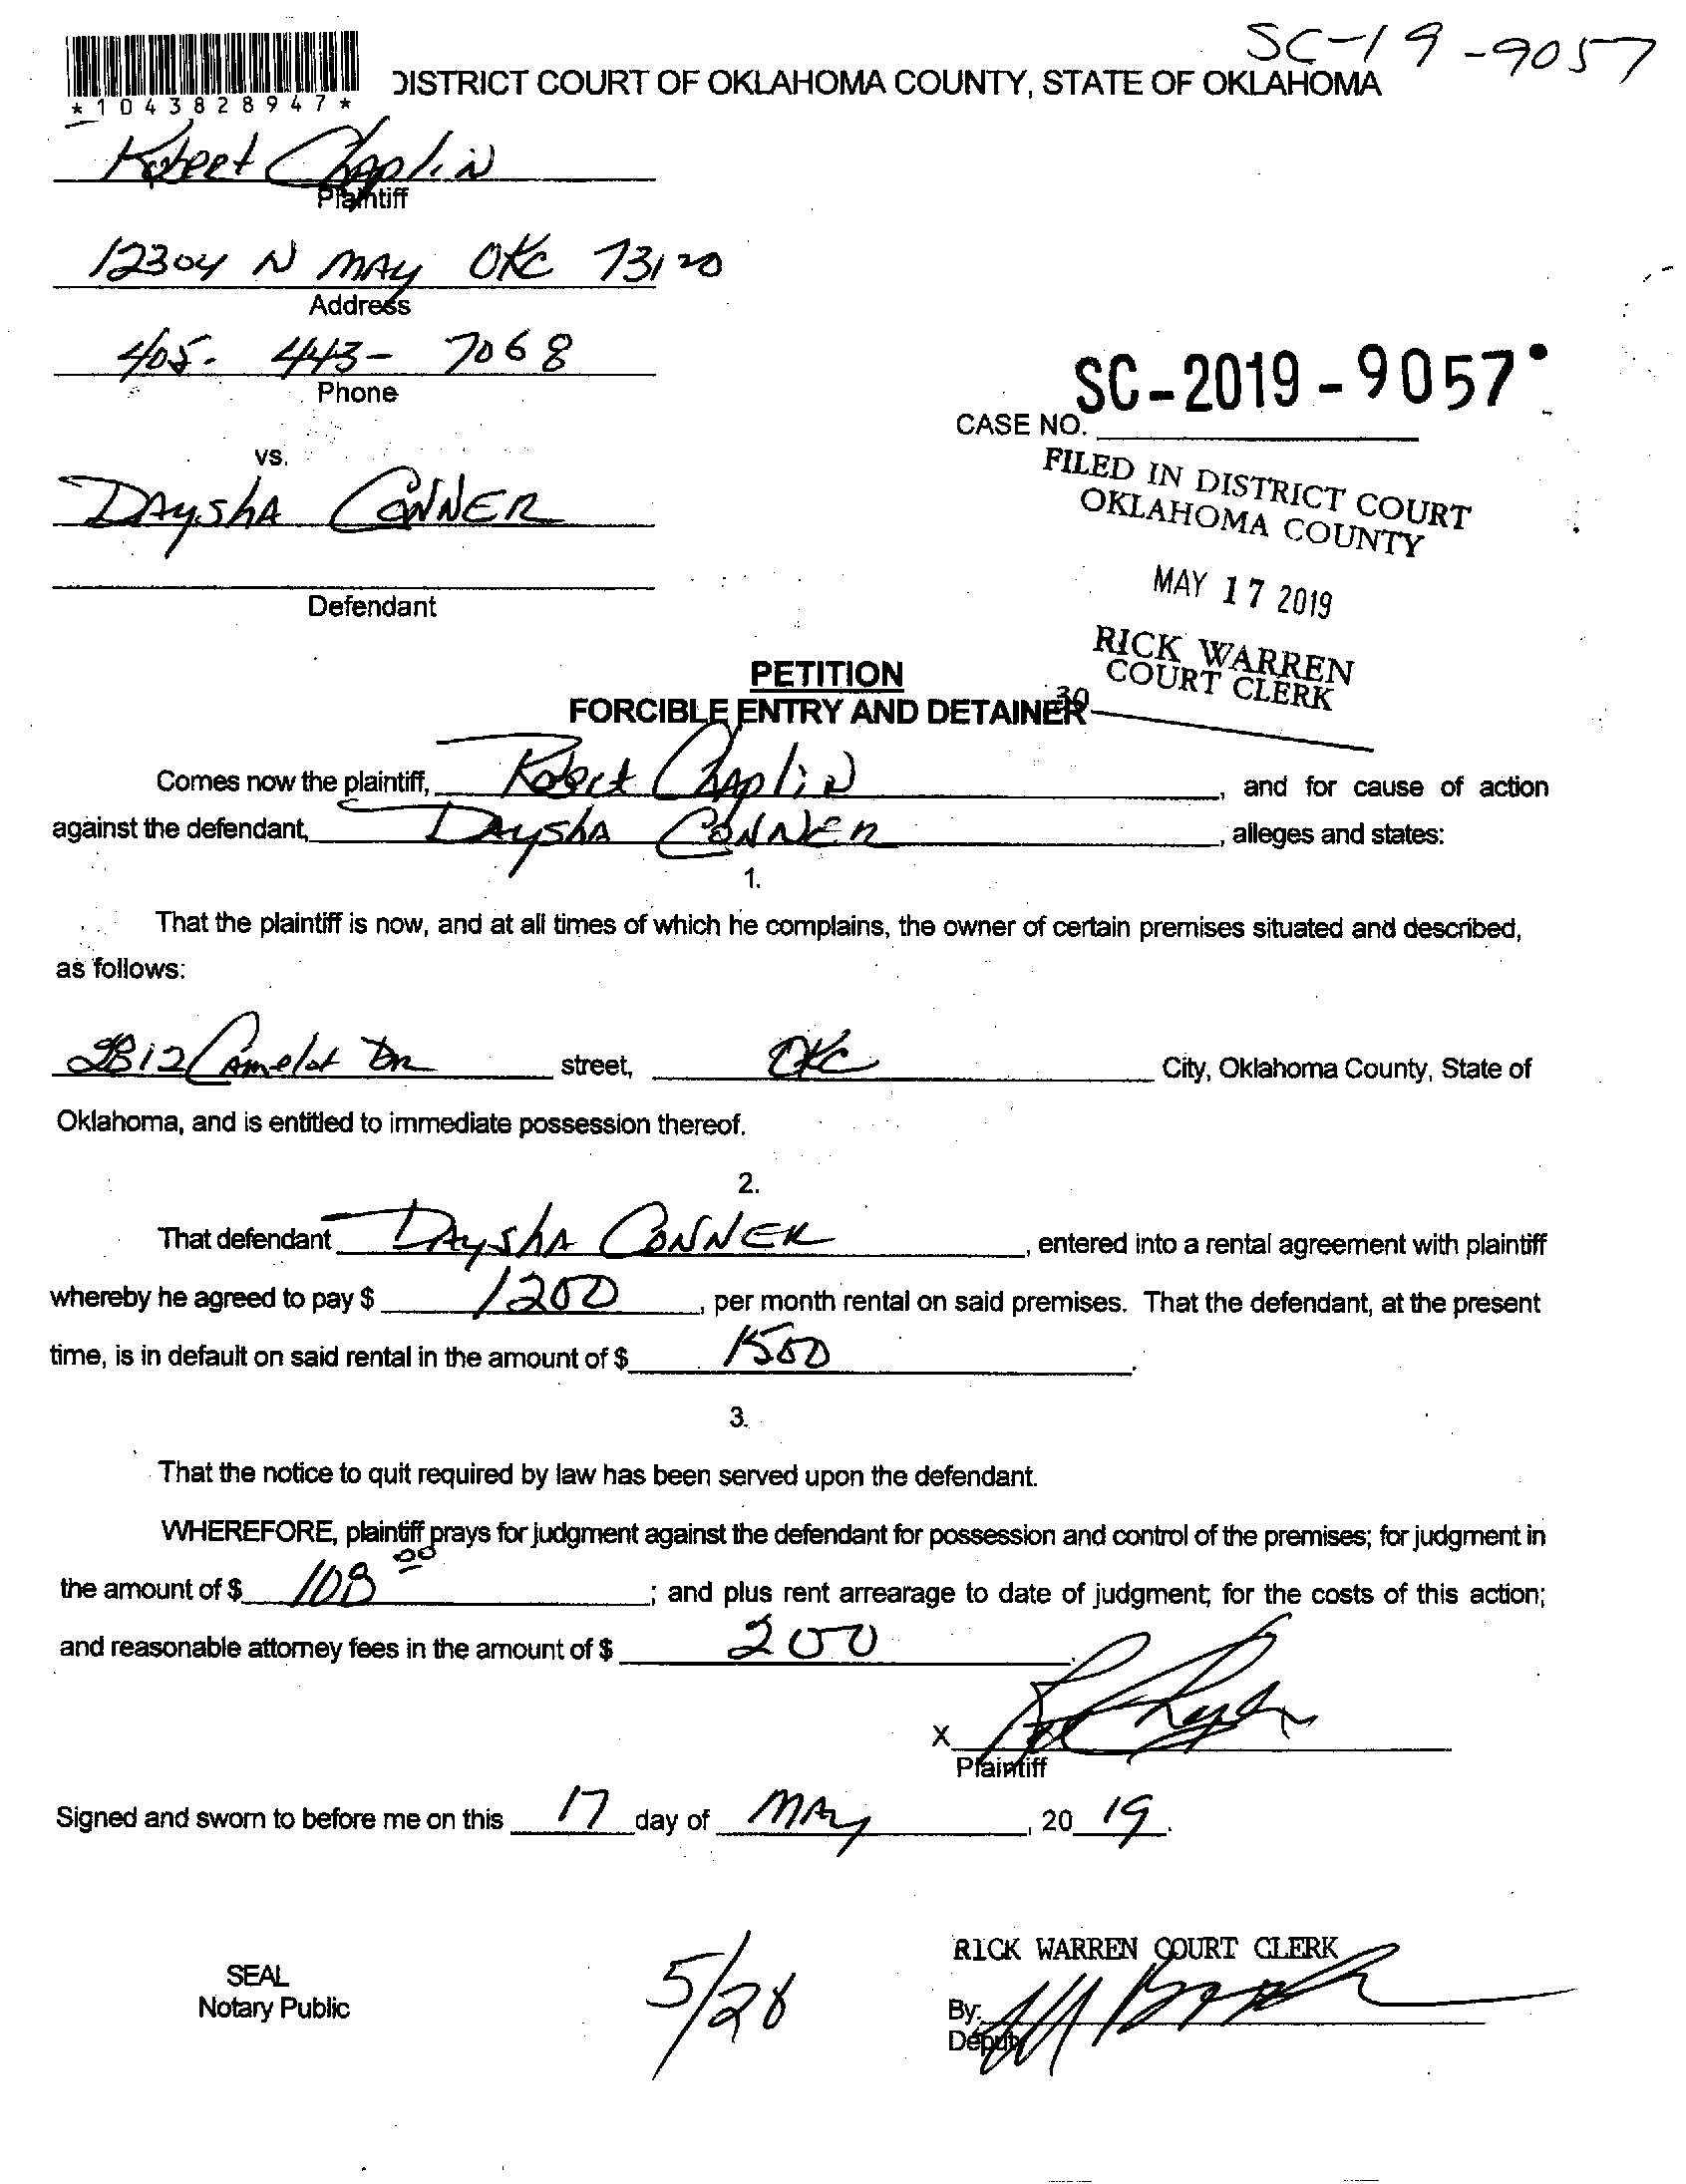 SC-19-9057
DISTRICT COURT OF OKLAHOMA COUNTY, STATE OF OKLAHOMA
*1043828947*
Robert Chaplin
Plaintiff
12304 N MAY OKC 73120
Address
405- 443- 7068
Phone
SC-2019-9057
CASE NO.
vs.
FILED IN DISTRICT COURT
OKLAHOMA COUNTY
DAyshA CONNER
MAY 17 2019
Defendant
RICK WARREN
COURT CLERK
PETITION
39
FORCIBLE ENTRY AND DETAINER
Comes now the plaintiff, Robert Chaplin, and for cause of action
against the defendant, DAyshA CONNER, alleges and states:
1.
That the plaintiff is now, and at all times of which he complains, the owner of certain premises situated and described,
as follows:
2812 Camelot Dr street, OKC City, Oklahoma County, State of
Oklahoma, and is entitled to immediate possession thereof.
2.
That defendant DAyshA CONNER, entered into a rental agreement with plaintiff
whereby he agreed to pay $ 1200, per month rental on said premises. That the defendant, at the present
time, is in default on said rental in the amount of $ 1500.
3.
That the notice to quit required by law has been served upon the defendant.
WHEREFORE, plaintiff prays for judgment against the defendant for possession and control of the premises; for judgment in
the amount of $ 108 00; and plus rent arrearage to date of judgment; for the costs of this action;
and reasonable attorney fees in the amount of $ 200.
X
Plaintiff
Signed and sworn to before me on this 17 day of MAy, 20 19.
RICK WARREN COURT CLERK
SEAL
Notary Public
5/28
By:
Deputy